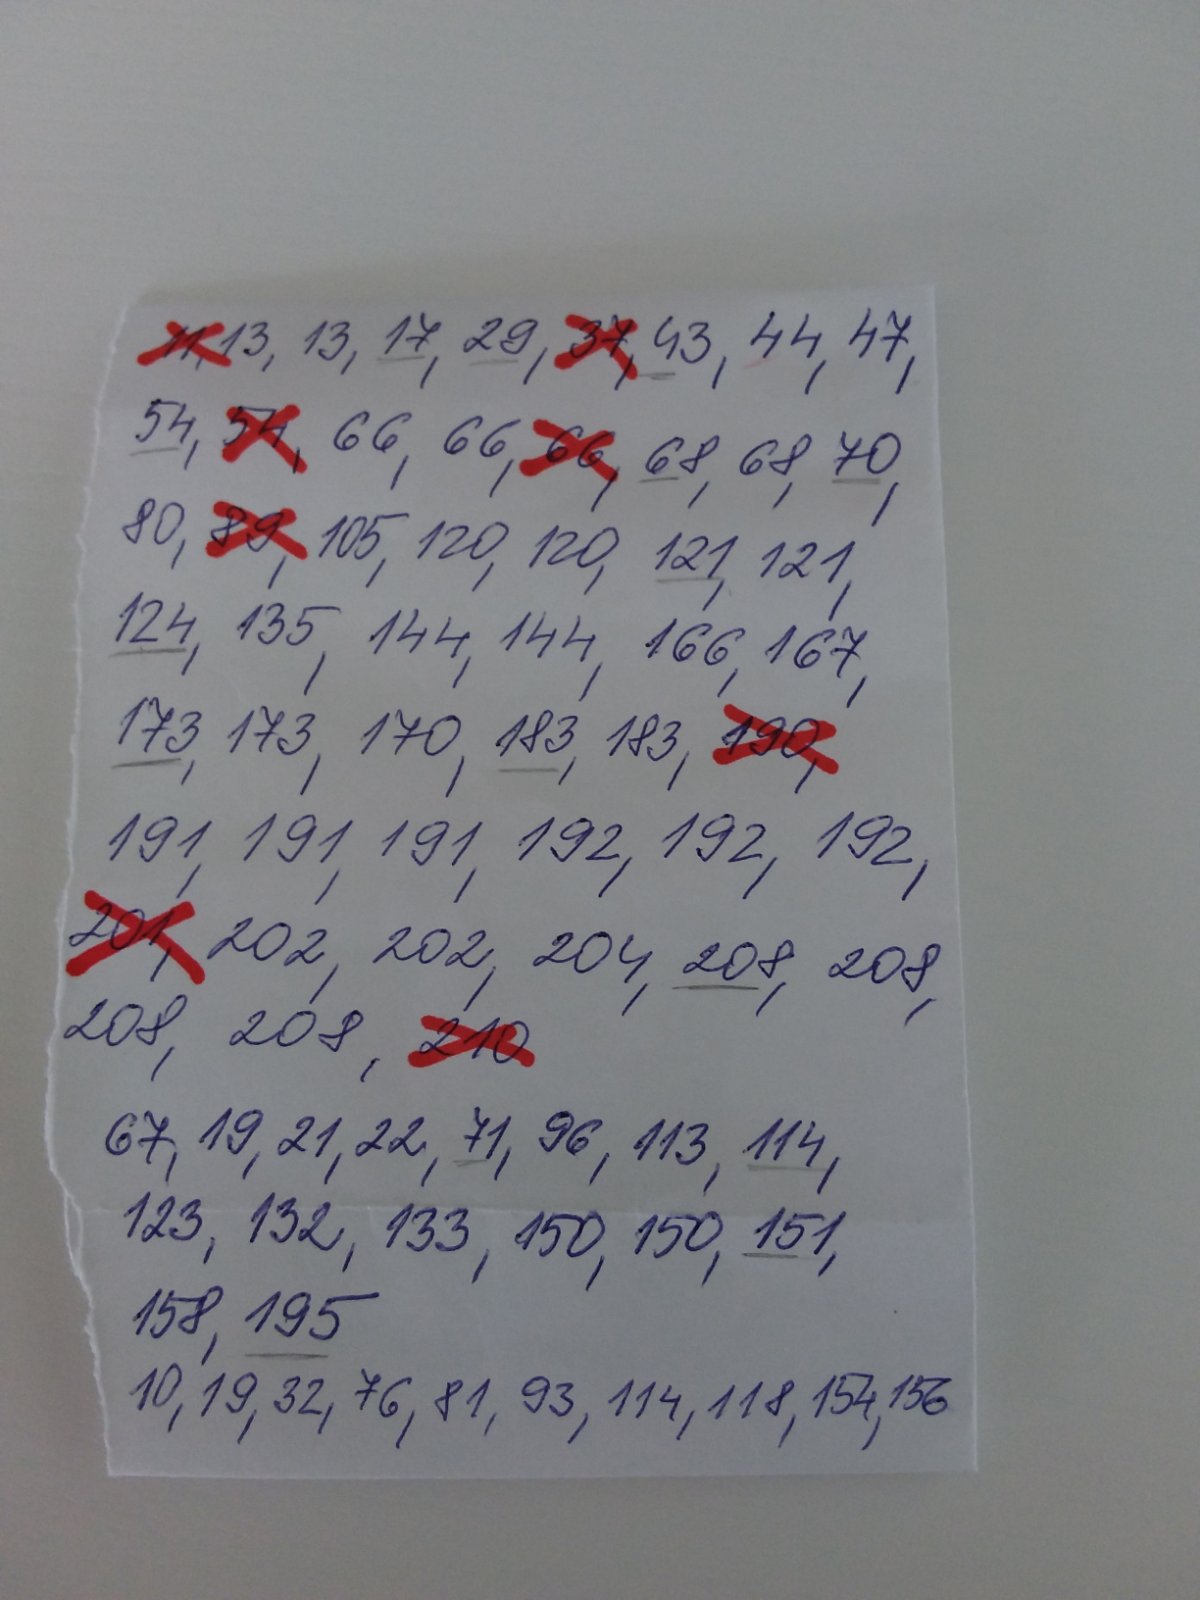 11, 13, 13, 17, 29, 37, 43, 44, 47,
54, 54, 66, 66, 66, 68, 68, 70,
80, 89, 105, 120, 120, 121, 121,
124, 135, 144, 144, 166, 167,
173, 173, 170, 183, 183, 190,
191, 191, 191, 192, 192, 192,
201, 202, 202, 204, 208, 208,
208, 208, 210
67, 19, 21, 22, 71, 96, 113, 114,
123, 132, 133, 150, 150, 151,
158, 195
10, 19, 32, 76, 81, 93, 114, 118, 154, 156